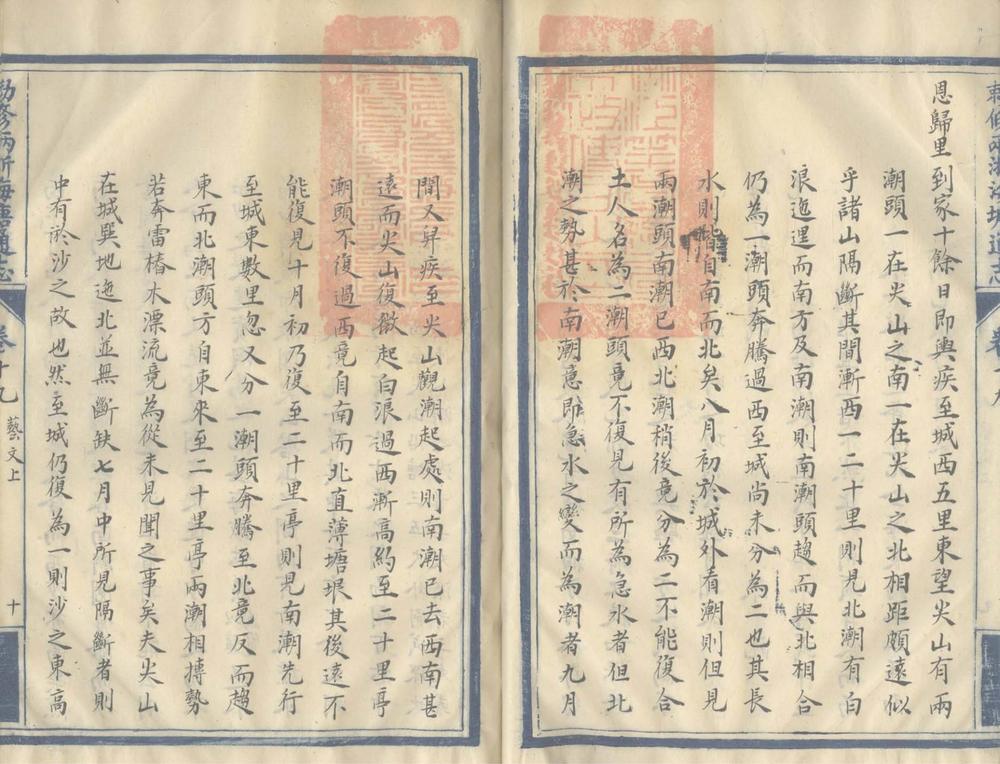 恩歸里到家十餘日即輿疾至城西五里東望尖山有兩
潮頭一在尖山之南一在尖山之北相距頗遠似
乎諸山隔斷其間漸西一二十里則見北潮有白
浪迤邐而南方及南潮則南潮頭趨而與北相合
仍為一潮頭奔騰過西至城尚未分為二也其長
水則皆自南而北矣八月初於城外看潮則但見
兩潮頭南潮已西北潮稍後竟分為二不能復合
土人名為二潮頭竟不復見有所為急水者但北
潮之勢甚於南潮意即急水之變而為潮者九月
閒又舁疾至尖山觀潮起處則南潮已去西南甚
遠而尖山復微起白浪過西漸高約至二十里亭
潮頭不復過西竟自南而北直薄塘垠其後遠不
能復見十月初乃復至二十里亭則見南潮先行
至城東數里忽又分一潮頭奔騰至北竟反而趨
東而北潮頭方自東來至二十里亭兩潮相摶勢
若奔雷樁木漂流竟為從未見聞之事矣夫尖山
在城巽地迤北並無斷缺七月中所見隔斷者則
中有於沙之故也然至城仍復為一則沙之東高
勅修兩浙海塘通志
卷十九
藝文上
十